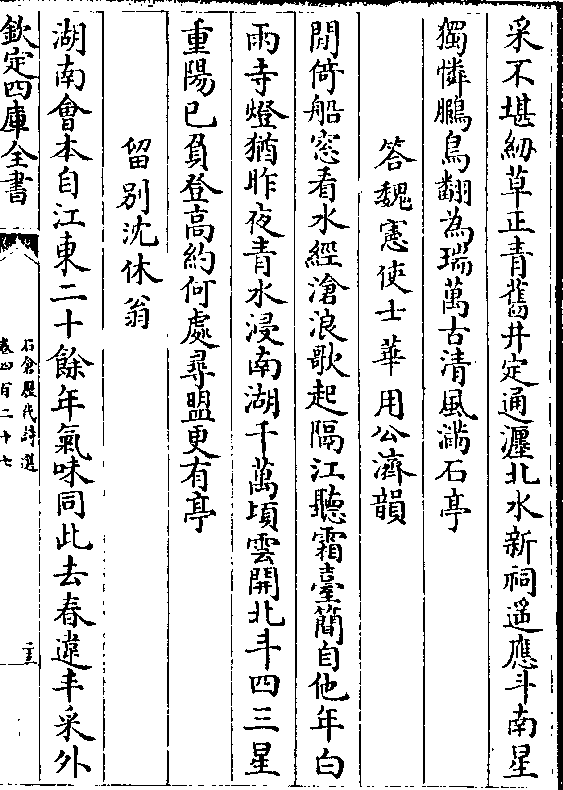 采不堪紉草正青舊井定通瀍北水新祠遥應斗南星
獨憐鵩鳥翻為瑞萬古清風滿石亭
答魏憲使士華用公濟韻
閒倚船窓看水經滄浪歌起隔江聽霜臺簡自他年白
雨寺燈猶昨夜青水浸南湖千萬頃雲開北斗四三星
重陽已負登高約何處尋盟更有亭
留别沈休翁
湖南會本自江東二十餘年氣味同此去春違丰采外
欽定四庫全書
石倉歷代詩選
卷四百二十七